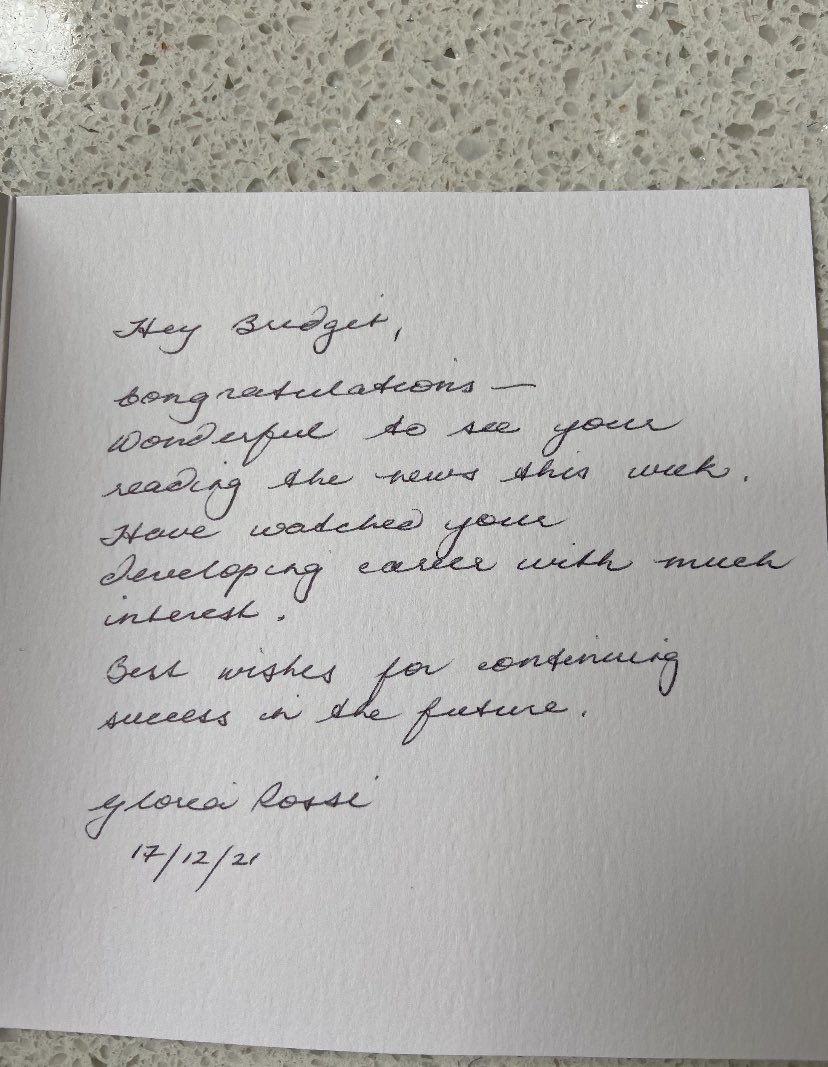 Hey Bridget,
Congratulations —
Wonderful to see your
reading the news this week.
Have watched your
developing career with much
interest.
Best wishes for continuing
success in the future.
Gloria Rossi
17/12/21